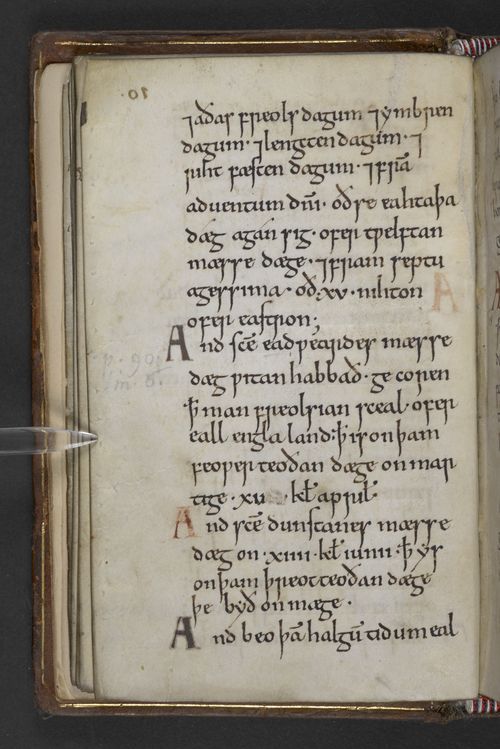 10.
⁊ aðas freols dagum ⁊ ymbren
dagum · ⁊ lengcten dagum · ⁊
riht fæsten dagum · ⁊ frā
aduentum dñi · oð se eahtaþa
dæg agán sig · ofer twelftan
mæsse dæge · ⁊ fram septu
agessima · oð · xv · nihton
ofer eastron ;
And sc̄e eadweardes mæsse
dæg witan habbað · ge coren
ꝥ man freolsian sceal · ofer
eall engla land · ꝥ is on þam
feowerteoðan dæge on mar
tige · xv kł april
And sc̄e dunstanes mæsse
dæg on · xiiii · kł iunii · ꝥ ys
on þam þreotteoðan dæge
þe byð on mæge ·
And beo þā halgū tidum eal